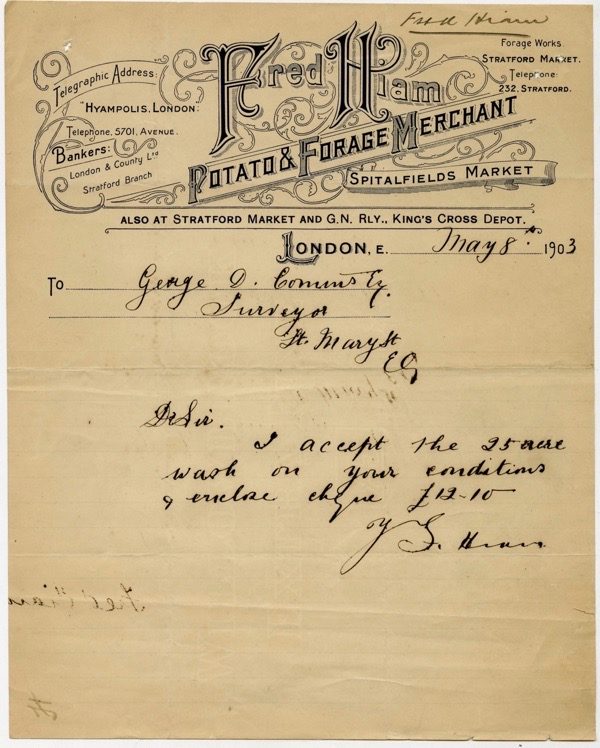 Fred Hiam
Telegraphic Address:
"Hyampolis, London."
Telephone, 5701, Avenue.
Bankers:
London & County Ltd
Stratford Branch
Fred Hiam
Potato & Forage Merchant
Spitalfields Market
Forage Works
Stratford Market.
Telephone:
232, Stratford.
Also at Stratford Market and G.N. Rly., King's Cross Depot.
London, E. May 8th 1903
To George D. Comins Esq.
Surveyor
St. Mary St
Ely
Dr Sir.
I accept the 25 acre
wash on your conditions
& enclose chque £12-10
F. Hiam
Fred Hiam